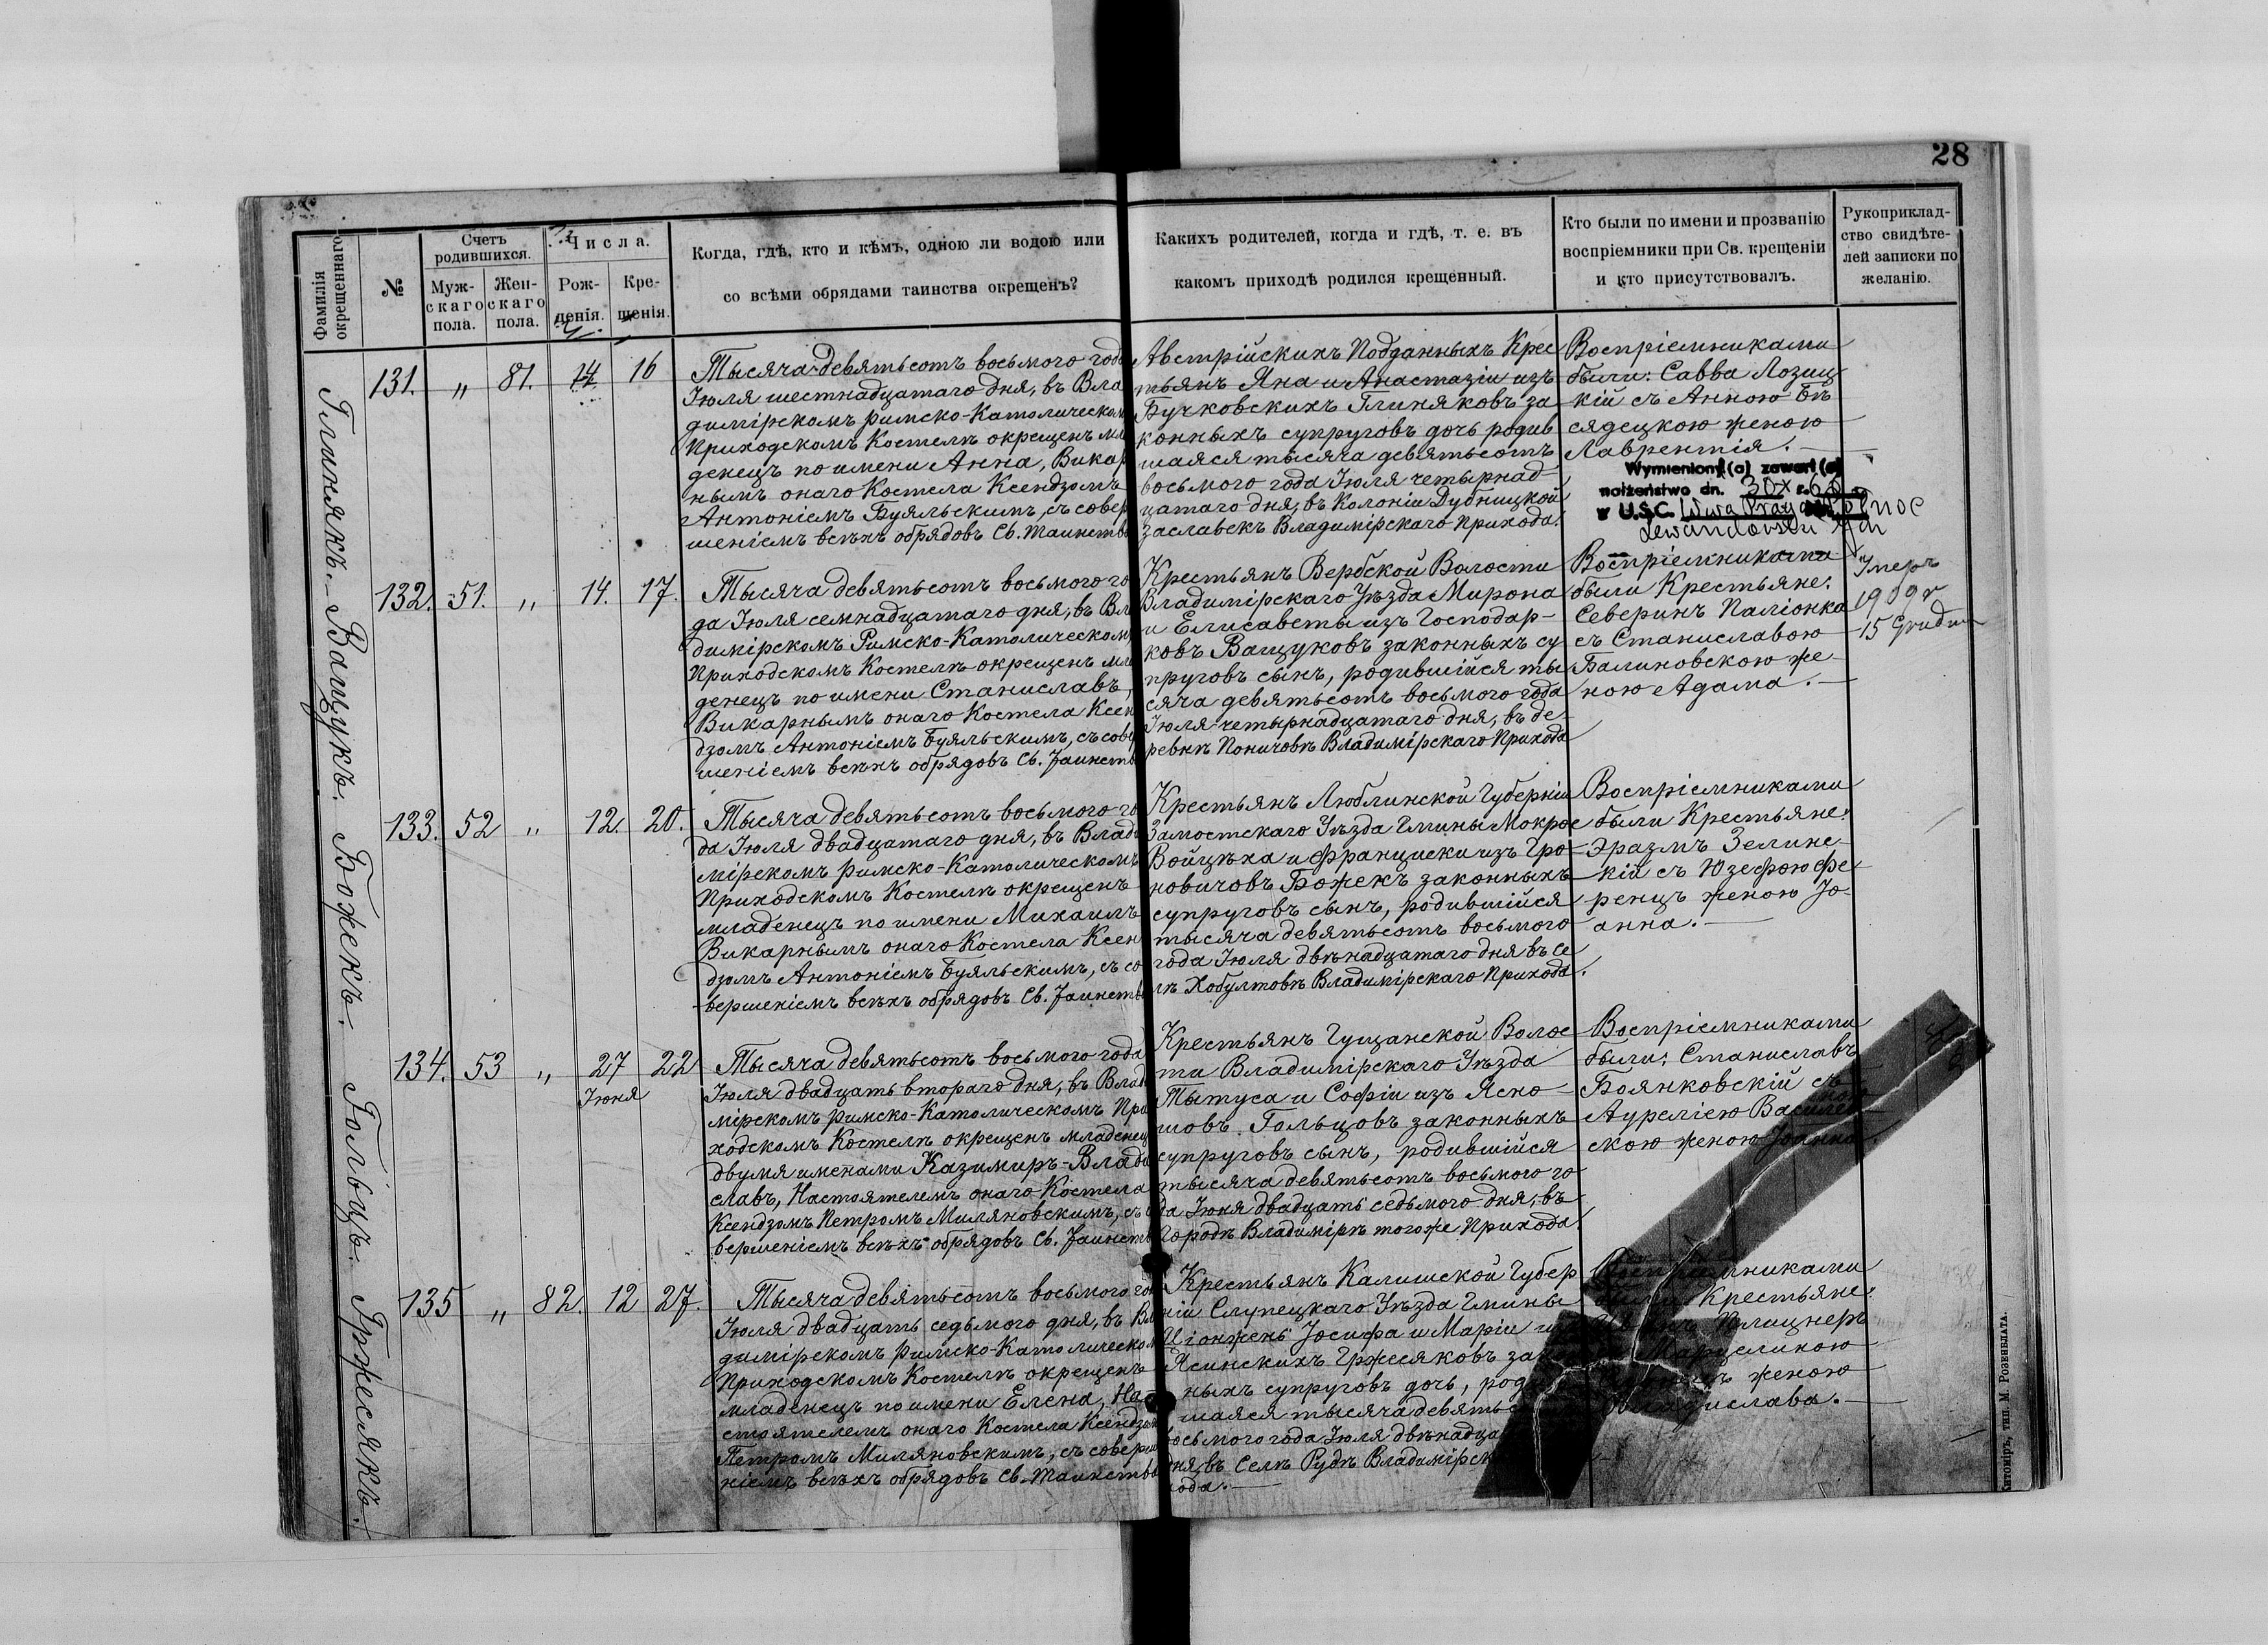 28
Фамилія окрещеннаго
№
Счетъ родившихся.
Муж-скаго пола.
Жен-скаго пола.
Числа.
Рож-денія.
Кре-щенія.
Когда, гдѣ, кто и кѣмъ, одною ли водою или
со всѣми обрядами таинства окрещенъ?
Какихъ родителей, когда и гдѣ, т. е. въ
какомъ приходѣ родился крещенный.
Кто были по имени и прозванію
воспріемники при Св. крещеніи
и кто присутствовалъ.
Рукоприклад-
ство свидѣте-
лей записки по
желанію.
Глинякъ.
131. " 81. 14 16
Тысяча девятьсотъ восьмого года
Іюля шестнадцатаго дня, въ Вла
димірскомъ Римско-Католическом
Приходскомъ Костелѣ окрещенъ мла
денецъ по имени Анна, Викар
нымъ онаго Костела Ксендзомъ
Антоніемъ Буяльскимъ, съ совер
шеніемъ всѣхъ обрядовъ Св. Таинства
Австрійскихъ Подданныхъ Крес
тьянъ Яна и Анастазіи изъ
Бучковскихъ Глиняковъ за
конныхъ супруговъ дочь родив
шаяся тысяча девятьсотъ
восьмого года Іюля четырнад-
цатаго дня, въ Колоніи Дубницкой
Заславекъ Владимірскаго Прихода.
Воспріемниками
были: Савва Лозиц
кій съ Анною Бѣ
сядецкою женою
Лаврентія.
Wymieniony(a) zawarł(a)
małżeństwo dn. 30 X r. 60
w U.S.C. W-wa Praga Północ
Lewandowski Jan
Ващукъ.
132. 51. " 14. 17.
Тысяча девятьсотъ восьмого го
да Іюля семнадцатаго дня, въ Вла
димірскомъ Римско-Католическомъ
Приходскомъ Костелѣ окрещенъ мла
денецъ по имени Станиславъ,
Викарнымъ онаго Костела Ксен
дзомъ Антоніемъ Буяльскимъ, съ совер
шеніемъ всѣхъ обрядовъ Св. Таинства
Крестьянъ Вербской Волости
Владимірскаго Уѣзда Мирона
и Елисаветы изъ Господар-
ковъ Ващуковъ законныхъ су
пруговъ сынъ, родившійся ты
сяча девятьсотъ восьмого года
Іюля четырнадцатаго дня, въ де-
ревнѣ Поничовѣ Владимірскаго Прихода
Воспріемниками
были Крестьяне:
Северинъ Паліонка
съ Станиславою
Балиновскою же-
ною Адама.
Умеръ
1909 r
15 Grudnia
Божекъ.
133. 52 " 12. 20.
Тысяча девятьсотъ восьмого го
да Іюля двадцатаго дня, въ Влади
мірскомъ Римско-Католическомъ
Приходскомъ Костелѣ окрещенъ
младенецъ по имени Михаилъ
Викарнымъ онаго Костела Ксен
дзомъ Антоніемъ Буяльскимъ, съ со
вершеніемъ всѣхъ обрядовъ Св. Таинства
Крестьянъ Люблинской Губерніи
Замостскаго Уѣзда Гмины Мокрое
Войцѣха и Франциски изъ Гро-
новичовъ Божекъ законныхъ
супруговъ сынъ, родившійся
тысяча девятьсотъ восьмого
года Іюля двѣнадцатаго дня въ се
лѣ Хобултовѣ Владимірскаго Прихода.
Воспріемниками
были Крестьяне:
Эразмъ Зелинс-
кій съ Юзефою Фе-
ренцъ женою Іо-
анна.
Гольцъ.
134. 53 " 27 Іюня 22
Тысяча девятьсотъ восьмого года
Іюля двадцать второго дня, въ Влади
мірскомъ Римско-Католическомъ При
ходскомъ Костелѣ окрещенъ младенец
двумя именами Казимиръ-Влади
славъ, Настоятелемъ онаго Костела
Ксендзомъ Петромъ Миляновскимъ, съ со
вершеніемъ всѣхъ обрядовъ Св. Таинства
Крестьянъ Гущанской Волос
ти Владимірскаго Уѣзда
Тытуса и Софіи изъ Ясно-
шовъ Гольцовъ законныхъ
супруговъ сынъ, родившійся
тысяча девятьсотъ восьмого го
да Іюня двадцать седьмого дня, въ
Городѣ Владимірѣ тогоже Прихода.
Воспріемниками
были: Станиславъ
Боянковскій съ
Аурелію
скою женою Іоанна.
Гржесякъ.
135 " 82. 12 27.
Тысяча девятьсотъ восьмого года
Іюля двадцать седьмого дня, въ Вла
димірскомъ Римско-Католическом
Приходскомъ Костелѣ окрещенъ
младенецъ по имени Елена, На-
стоятелемъ онаго Костела Ксендзом
Петромъ Миляновскимъ, съ соверше
ніемъ всѣхъ обрядовъ Св. Таинства
Крестьянъ Калишской Губер
ніи Слупецкаго Уѣзда Гмины
Ціонжень Іосифа и Маріи
Ясинскихъ Гржесяковъ за
ныхъ супруговъ дочь,
шаяся тысяча
восьмого года Іюля двѣнадца
дня, въ Селѣ Рудѣ Владимірск
хода.
Воспріемниками
были Крестьяне:
женою
Житоміръ, тип. М. Розенблата.